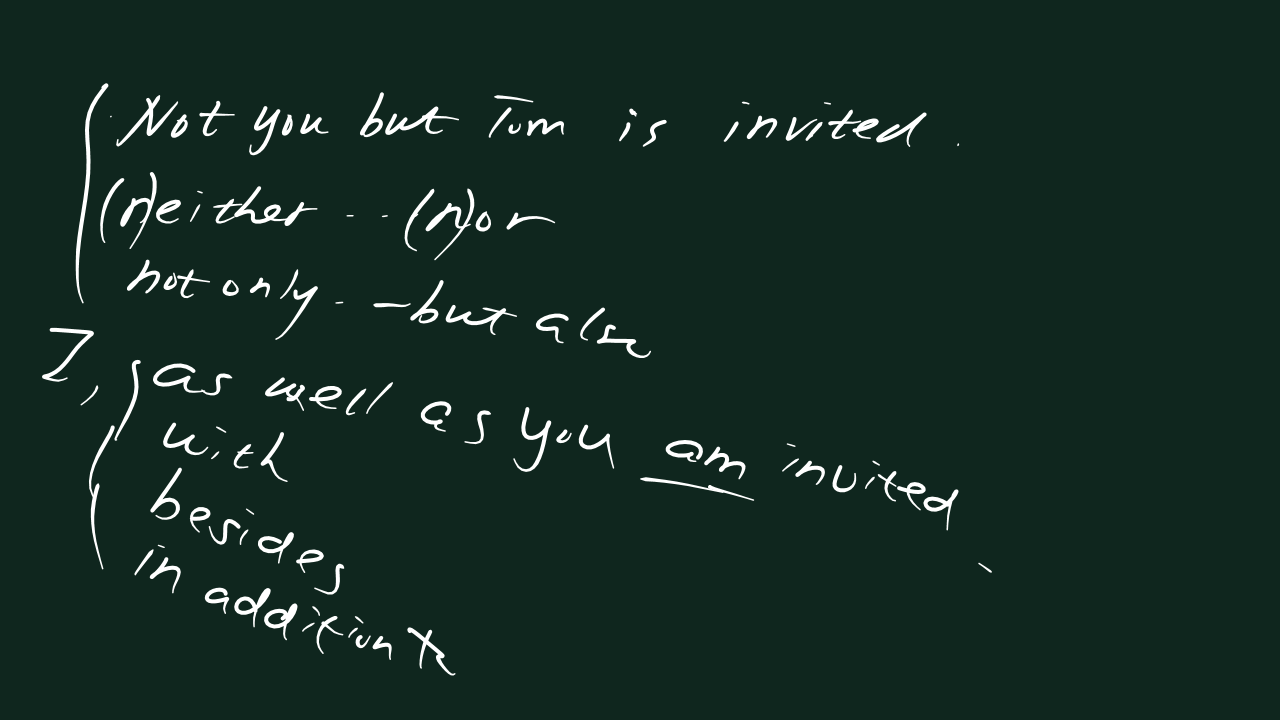 Not you but Tom is invited.
(n)either ... (n)or
not only ... but also
I, as well as you am invited.
with
besides
in addition to